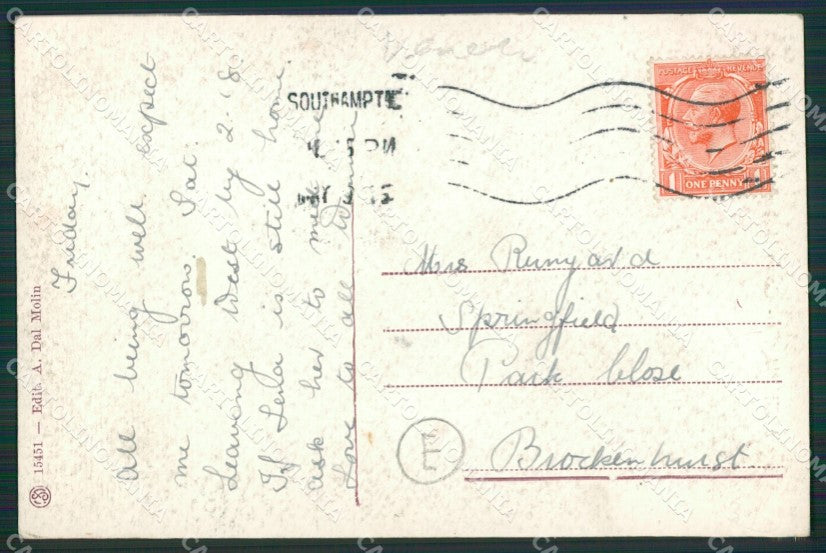 Friday.
All being well expect
me tomorrow. Sat.
Leaving West by 2.18
If Lena is still home
ask her to meet me
Love to all
SOUTHAMPT
PM
MAY 15
POSTAGE REVENUE
1 ONE PENNY 1
Mrs Runyard
Springfield
Park Close
Brockenhurst
15451 — Edit. A. Dal Molin
CARTOLINOMANIA